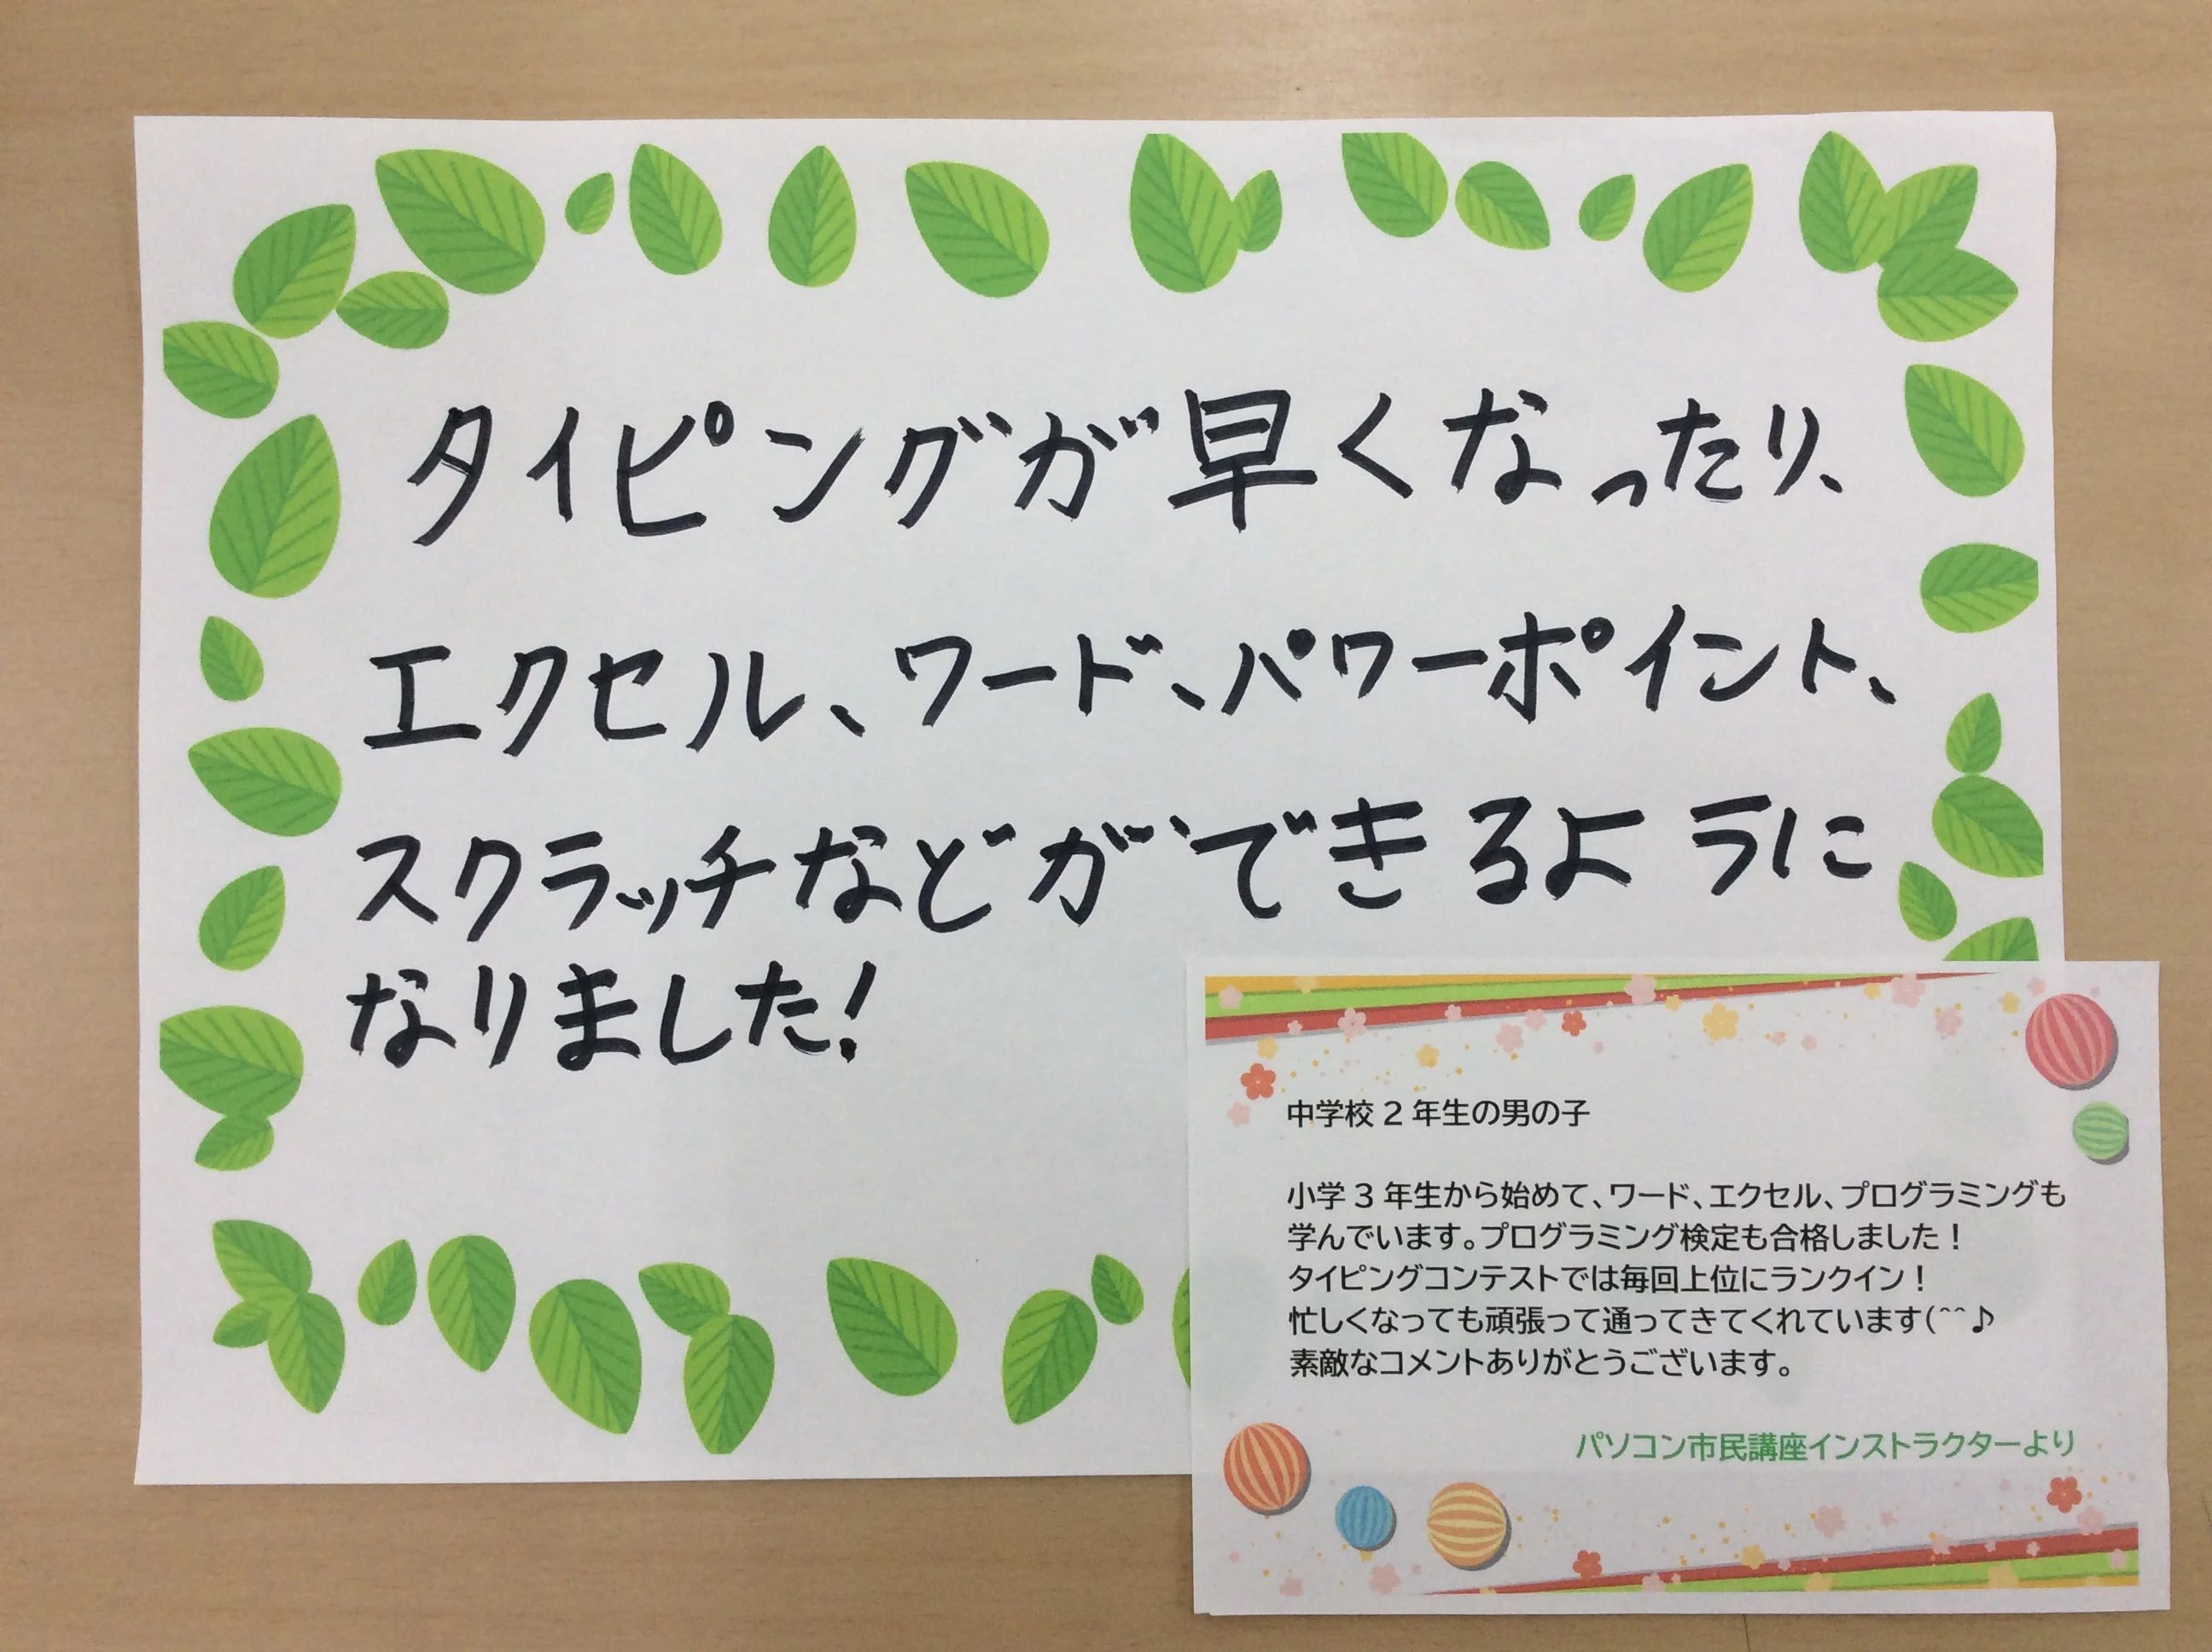 タイピングが早くなったり、
エクセル、ワード、パワーポイント、
スクラッチなどができるように
なりました!
中学校2年生の男の子
小学3年生から始めて、ワード、エクセル、プログラミングも
学んでいます。プログラミング検定も合格しました!
タイピングコンテストでは毎回上位にランクイン!
忙しくなっても頑張って通ってきてくれています(^^♪
素敵なコメントありがとうございます。
パソコン市民講座インストラクターより